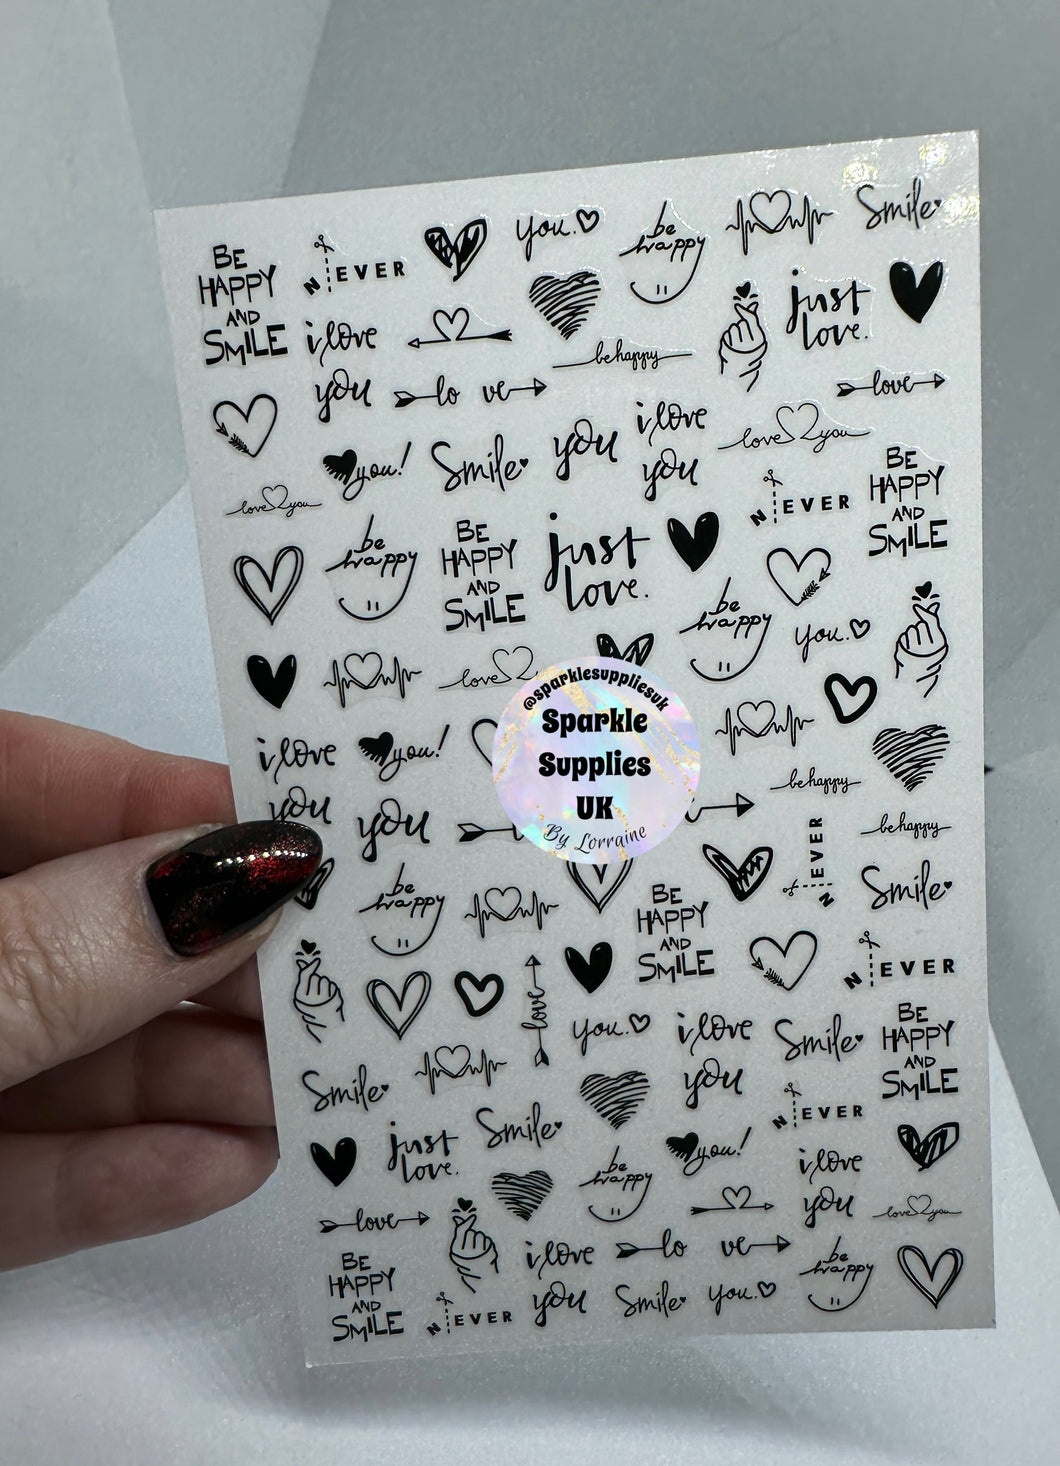 you.
be
happy
Smile
BE
HAPPY
AND
SMILE
N EVER
just
love.
i love
you
be happy
lo ve
love
you!
Smile
you
i love
you
love you
BE
HAPPY
AND
SMILE
N EVER
love you
be
happy
BE
HAPPY
AND
SMILE
just
love.
be
happy
you.
love
@sparklesuppliesuk
Sparkle
Supplies
UK
By Lorraine
i love
you
you!
you
be happy
be happy
N EVER
Smile
be
happy
BE
HAPPY
AND
SMILE
N EVER
love
you.
i love
you
Smile
BE
HAPPY
AND
SMILE
Smile
N EVER
just
love.
Smile
you!
i love
you
be
happy
love you
love
BE
HAPPY
AND
SMILE
N EVER
i love
you
lo ve
Smile
you.
be
happy